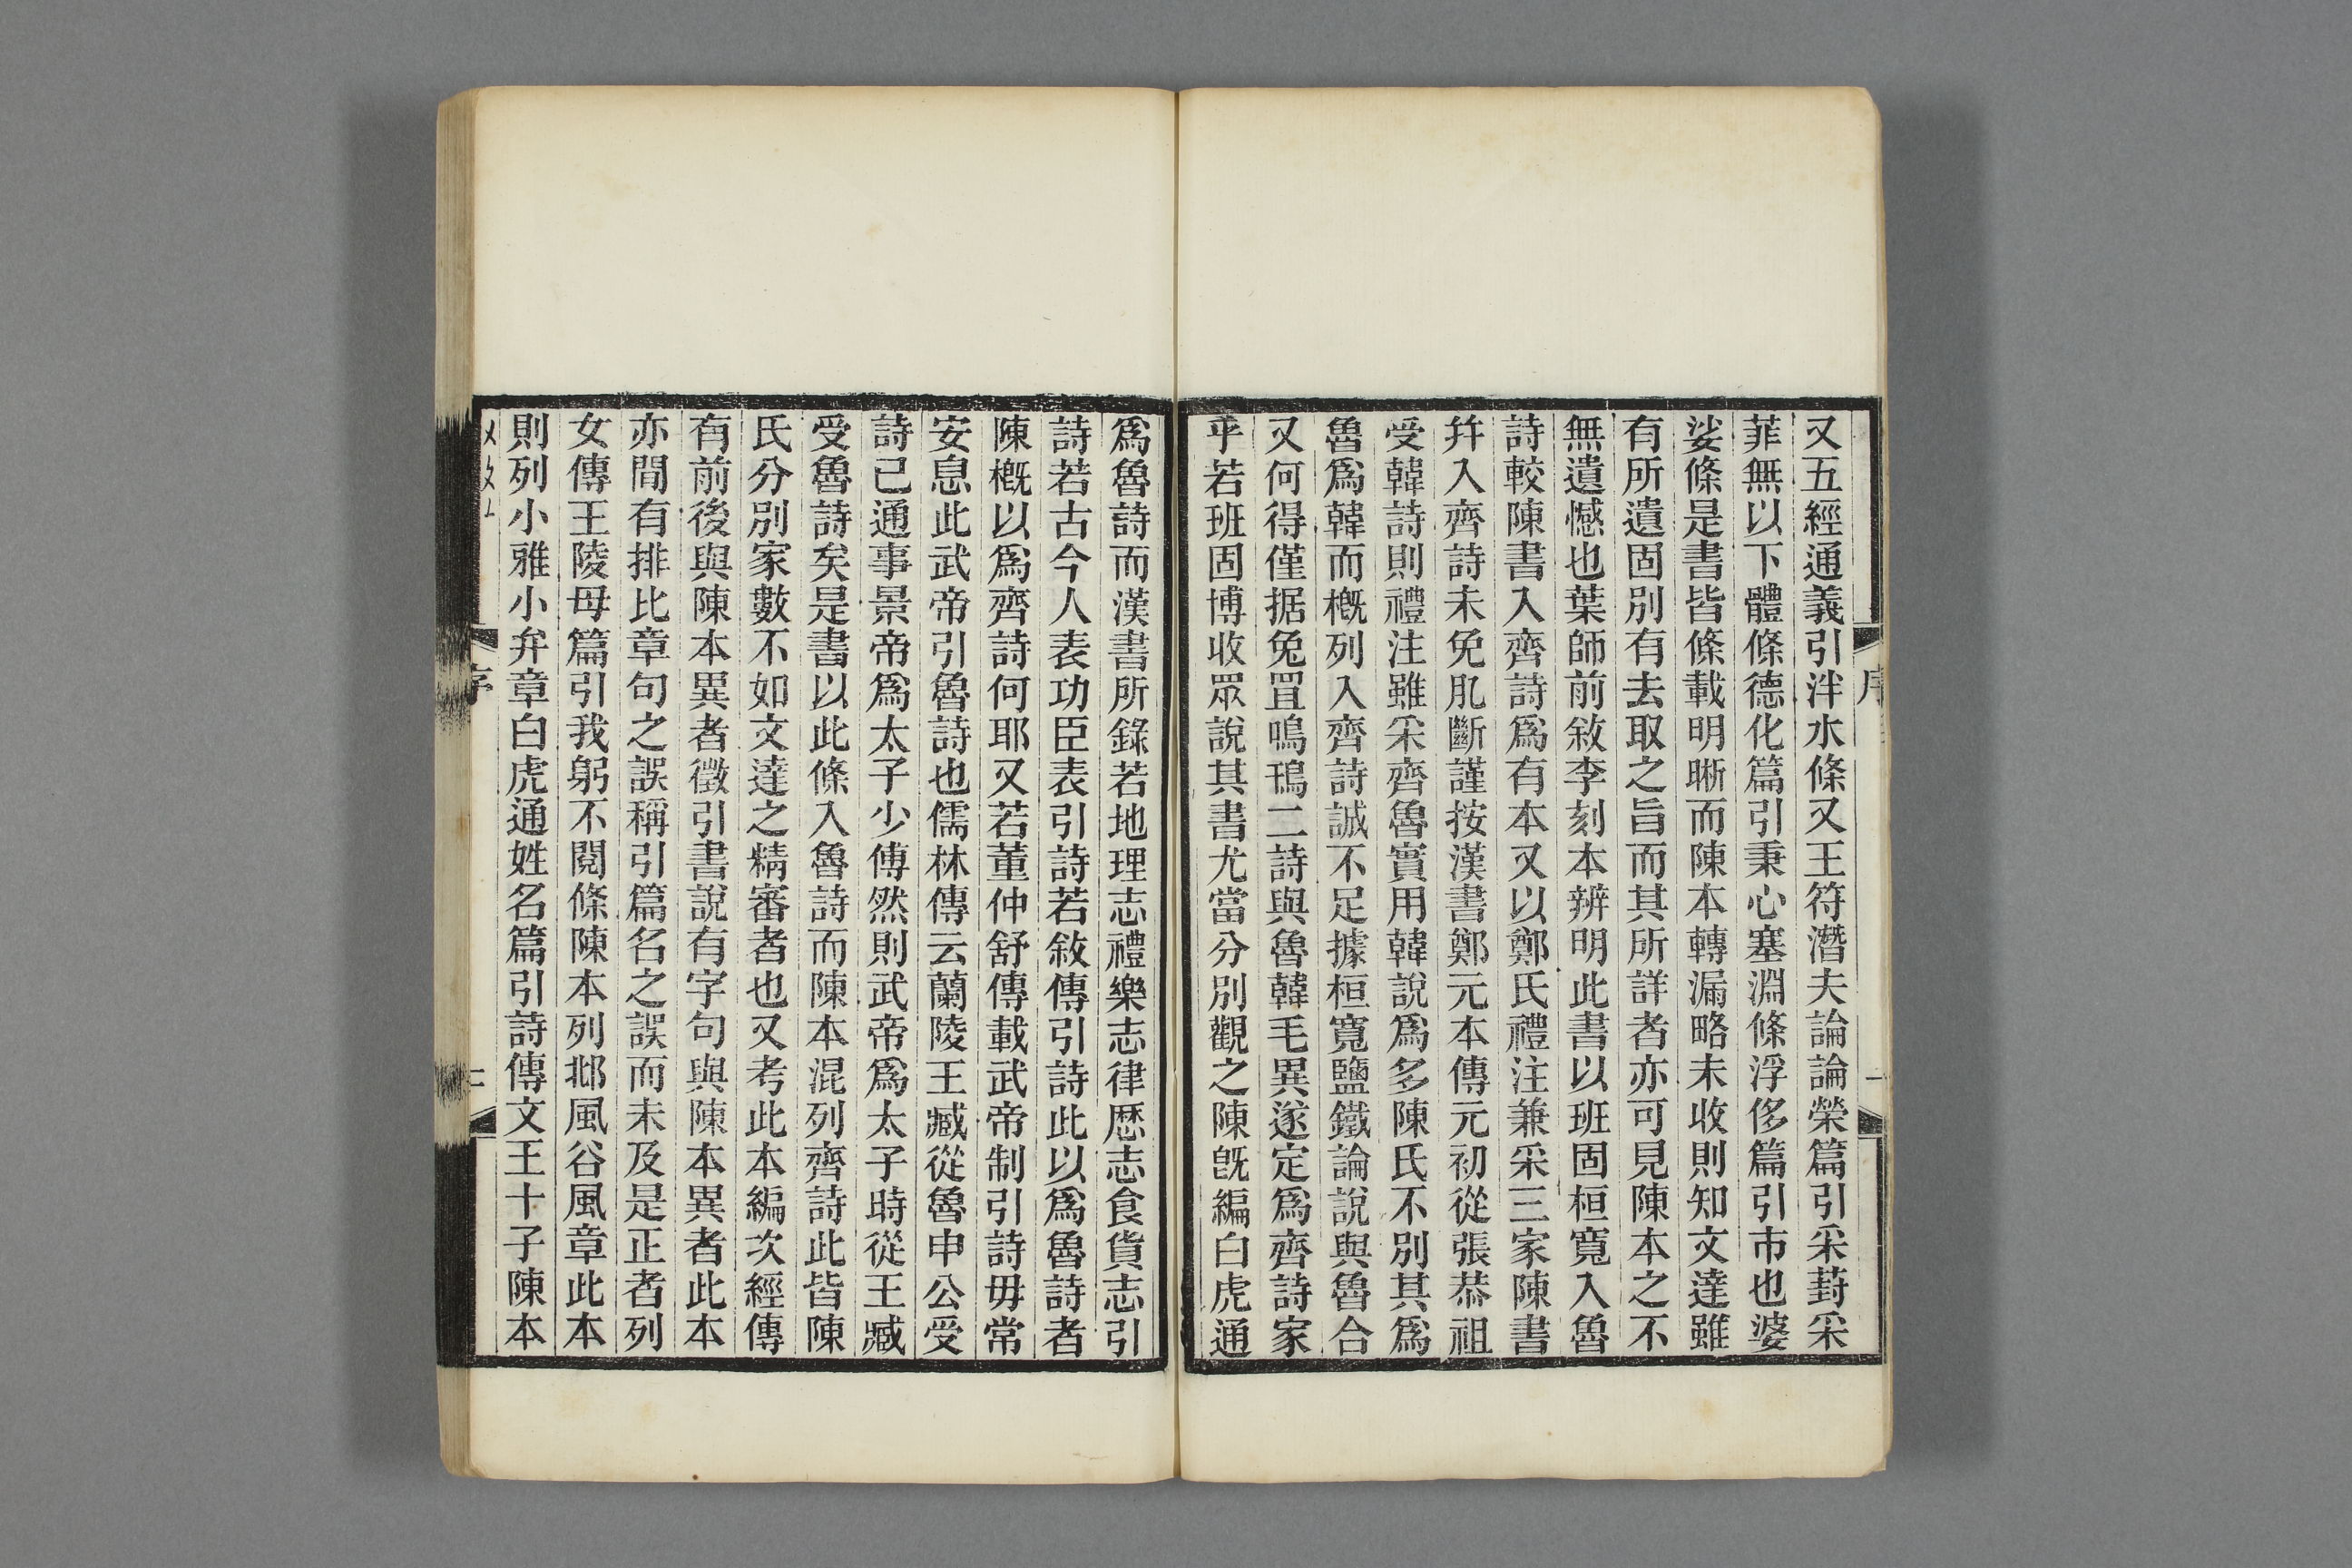 又五經通義引泮水條又王符潛夫論論榮篇引采葑采
菲無以下體條德化篇引秉心塞淵條浮侈篇引市也婆
娑條是書皆條載明晰而陳本轉漏略未收則知文達雖
有所遺固別有去取之旨而其所詳者亦可見陳本之不
無遺憾也葉師前敘李刻本辨明此書以班固桓寬入魯
詩較陳書入齊詩爲有本又以鄭氏禮注兼采三家陳書
幷入齊詩未免肊斷謹按漢書鄭元本傳元初從張恭祖
受韓詩則禮注雖采齊魯實用韓說爲多陳氏不別其爲
魯爲韓而槪列入齊詩誠不足據桓寬鹽鐵論說與魯合
又何得僅据兔罝鳴鴇二詩與魯韓毛異遂定爲齊詩家
乎若班固博收眾說其書尤當分別觀之陳旣編白虎通
爲魯詩而漢書所錄若地理志禮樂志律厯志食貨志引
詩若古今人表功臣表引詩若敘傳引詩此以爲魯詩者
陳槪以爲齊詩何耶又若董仲舒傳載武帝制引詩毋常
安息此武帝引魯詩也儒林傳云蘭陵王臧從魯申公受
詩已通事景帝爲太子少傅然則武帝爲太子時從王臧
受魯詩矣是書以此條入魯詩而陳本混列齊詩此皆陳
氏分別家數不如文達之精審者也又考此本編次經傳
有前後與陳本異者徵引書說有字句與陳本異者此本
亦間有排比章句之誤稱引篇名之誤而未及是正者列
女傳王陵母篇引我躬不閱條陳本列邶風谷風章此本
則列小雅小弁章白虎通姓名篇引詩傳文王十子陳本
序
二